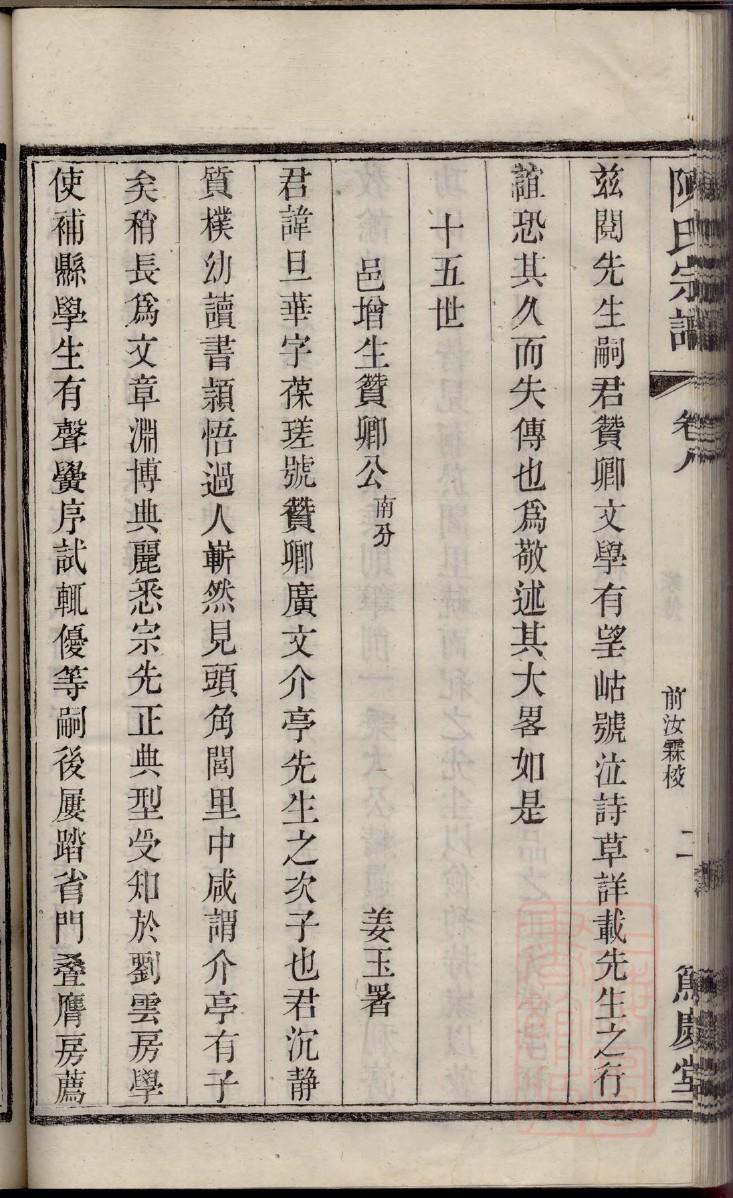 陳氏宗譜
卷八
前汝霖校
二
篤慶堂
茲閱先生嗣君贊卿文學有望岵號泣詩草詳載先生之行
誼恐其久而失傳也為敬述其大畧如是
十五世
邑增生贊卿公 南分
姜玉署
君諱旦華字葆瑳號贊卿廣文介亭先生之次子也君沉静
質樸幼讀書穎悟過人嶄然見頭角閭里中咸謂介亭有子
矣稍長為文章淵博典麗悉宗先正典型受知於劉雲房學
使補縣學生有聲黌序試輒優等嗣後屢踏省門叠膺房薦